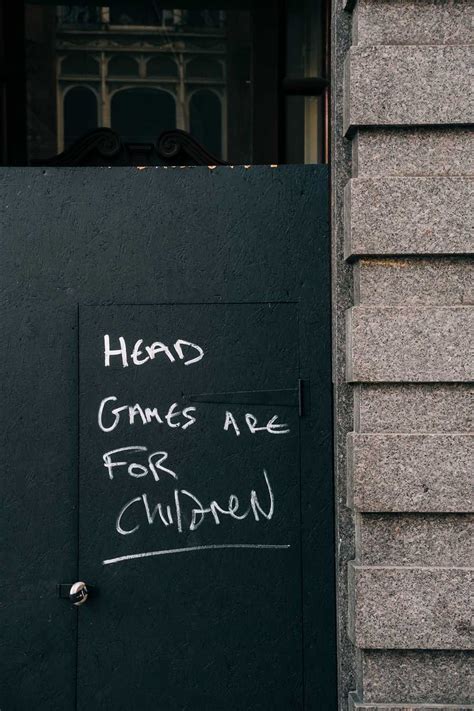 HEAD
GAMES ARE
FOR
CHilDreN